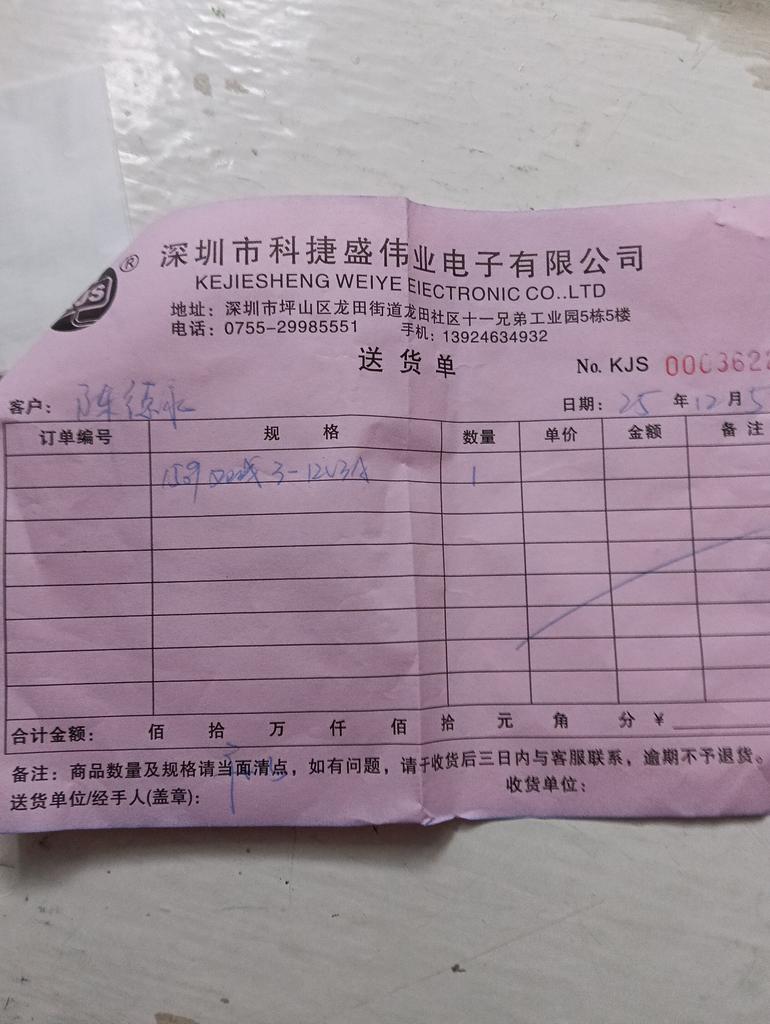 JS ®
深圳市科捷盛伟业电子有限公司
KEJIESHENG WEIYE ElECTRONIC CO..LTD
地址：深圳市坪山区龙田街道龙田社区十一兄弟工业园5栋5楼
电话：0755-29985551 手机：13924634932
送货单 No. KJS 0003622
客户：陈德永 日期：25年12月5
订单编号 规格 数量 单价 金额 备注
3-12V3A 1
合计金额： 佰 拾 万 仟 佰 拾 元 角 分 ¥
备注：商品数量及规格请当面清点，如有问题，请于收货后三日内与客服联系，逾期不予退货。
送货单位/经手人(盖章)： 收货单位：